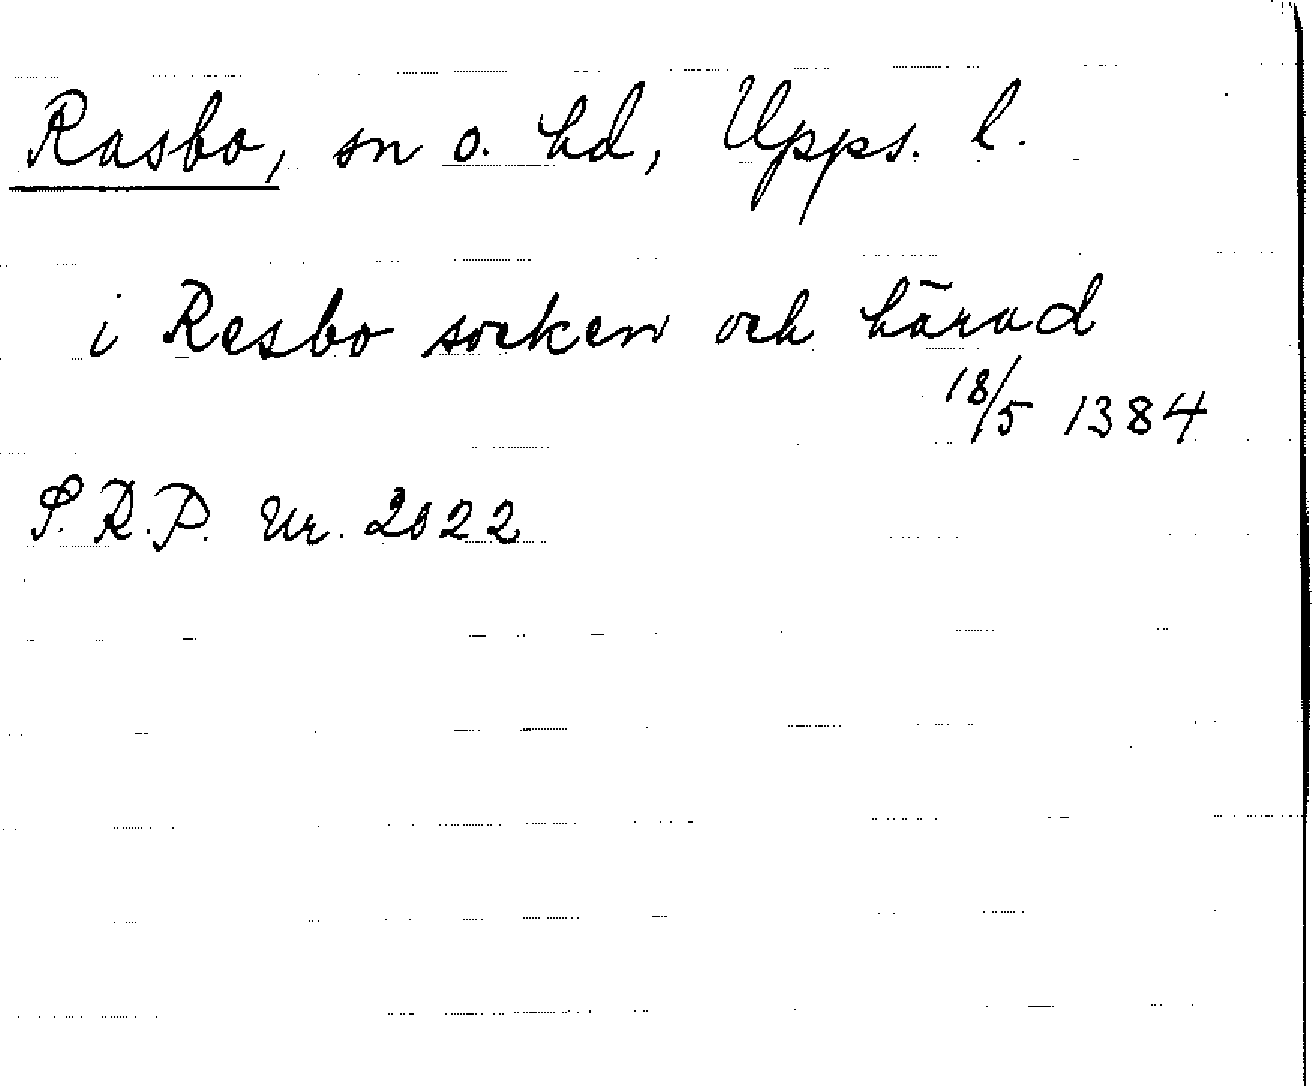 Rasbo, sn o. hd, Upps. l.
i Resbo socken och härad
18/5 1384
S.R.P. Nr. 2022